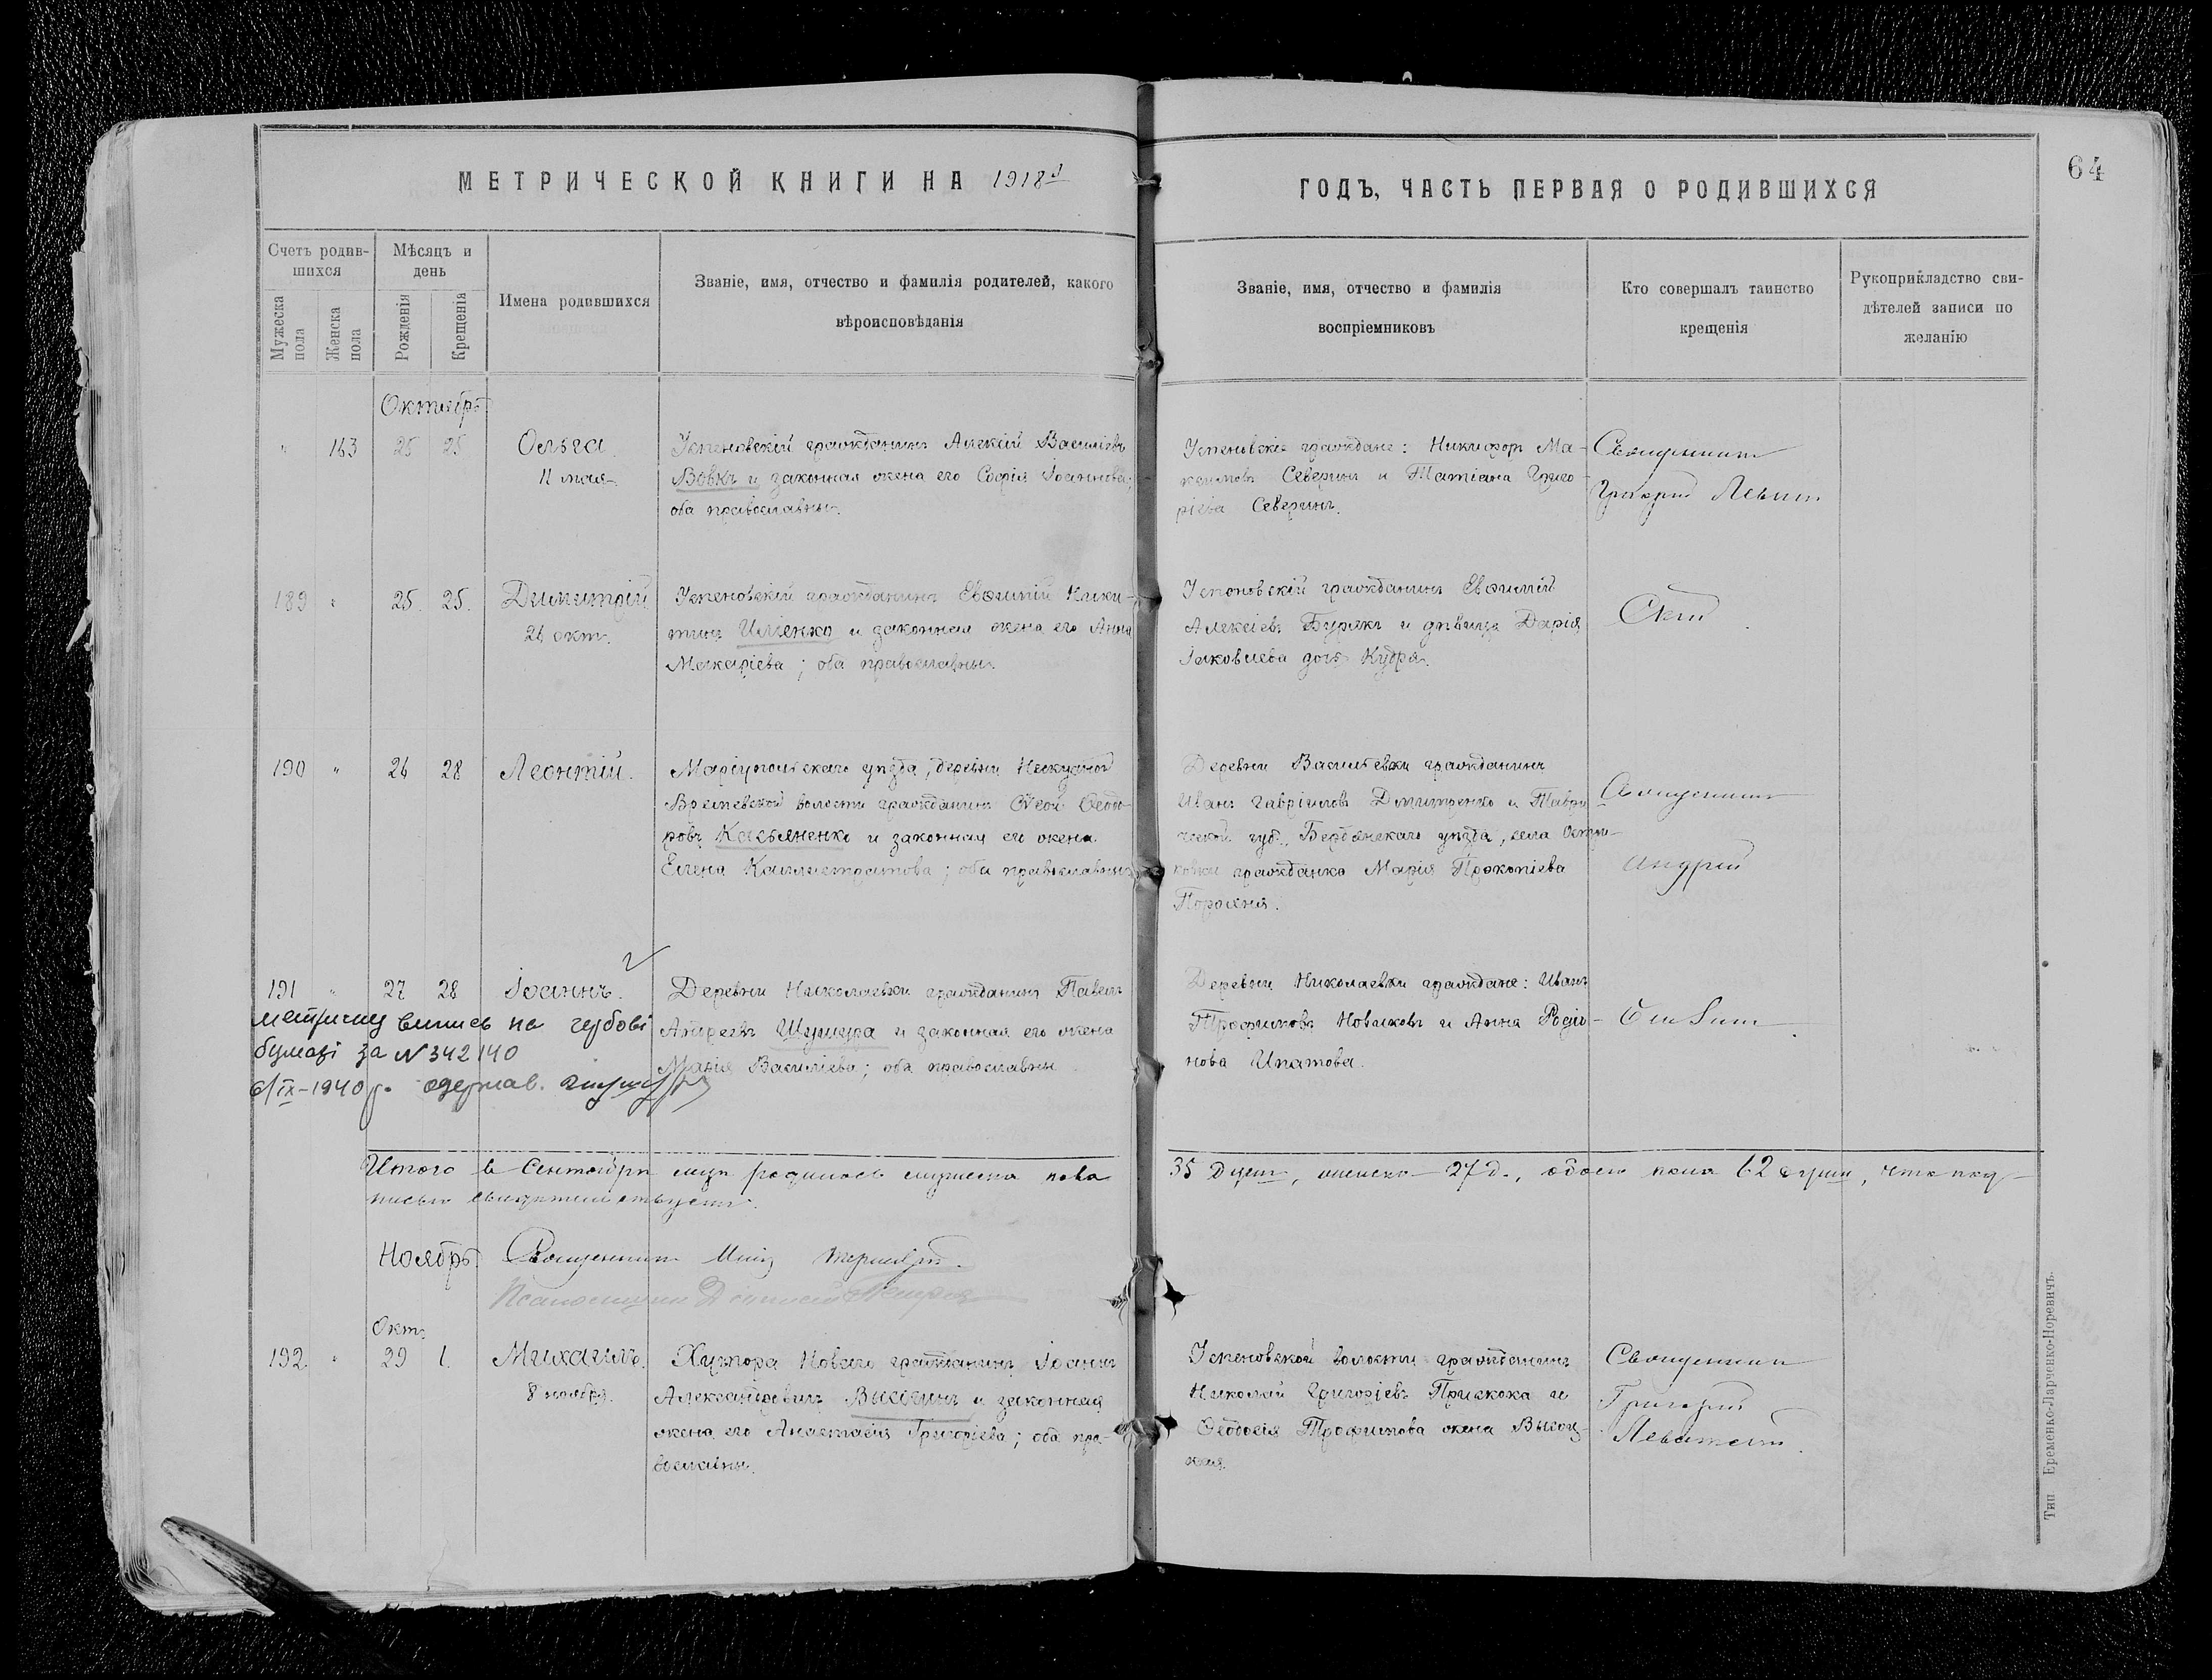 64
МЕТРИЧЕСКОЙ КНИГИ НА 1918й
ГОДЪ, ЧАСТЬ ПЕРВАЯ О РОДИВШИХСЯ
Счетъ родив-
шихся
Мужеска пола
Женска пола
Мѣсяцъ и
день
Рожденія
Крещенія
Имена родившихся
Званіе, имя, отчество и фамилія родителей, какого
вѣроисповѣданія
Званіе, имя, отчество и фамилія
воспріемниковъ
Кто совершалъ таинство
крещенія
Рукоприкладство сви-
дѣтелей записи по
желанію
Октябрь
" 163 25 25 Ольга
11 мая
Успеновскій гражданинъ Алексій Василіевъ
Вовкъ и законная жена его Софія Іоаннова;
оба православны.
Успеновскіе граждане: Никифоръ Ма-
ксимовъ Северинъ и Татіана Григо
ріева Северинъ.
Священникъ
Григорій
189 " 25. 25. Димитрій
26 окт.
Успеновскій гражданинъ Евѳимій Ники-
тинъ Ильенко и законная жена его Анна
Макаріева; оба православны.
Успеновскій гражданинъ Евѳимій
Алексіевъ Бурякъ и дѣвица Дарія
Іаковлева дочь Кудря.
190 " 26 28 Леонтій.
Маріупольскаго уѣзда, деревни
волости гражданинъ Ѳеодо-
ровъ Касьяненко и законная его жена
Елена Каллистратова; оба православны
Деревни Васильевки гражданинъ
Иванъ Гавріиловъ Дмитренко и Таври
ческой губ., Бердянскаго уѣзда, села
гражданка Марія Прокопіева
Священникъ
Андрей
191 " 27 28 Іоаннъ.
Деревни Николаевки гражданинъ Павелъ
Андреевъ Шушура и законная его жена
Марія Василіева; оба православны
Деревни Николаевки граждане: Иванъ
Трофимовъ Новиковъ и Анна Родіо-
нова Ипатова.
метричну випись на гербові
бумазі за N 342140
IX-1940 р. одержав.
Итого въ Сентябрѣ родилось мужеска пола
35 душъ, женска 27 д., обоего пола 62 души, что под-
писью свидетельствуемъ.
Ноябрь.
Священникъ
Псаломщикъ
Окт.
192. " 29 1. Михаилъ.
8 ноября.
Хутора Новаго гражданинъ Іоаннъ
Александровичъ и законная
жена его Анастасія Григоріева; оба пра-
вославны.
Успеновской волости гражданинъ
Николай Григоріевъ и
Ѳеодосія Трофимова жена Высоц-
кая.
Священникъ
Григорій
Тип Еременко-Ларченко-Норевичъ.